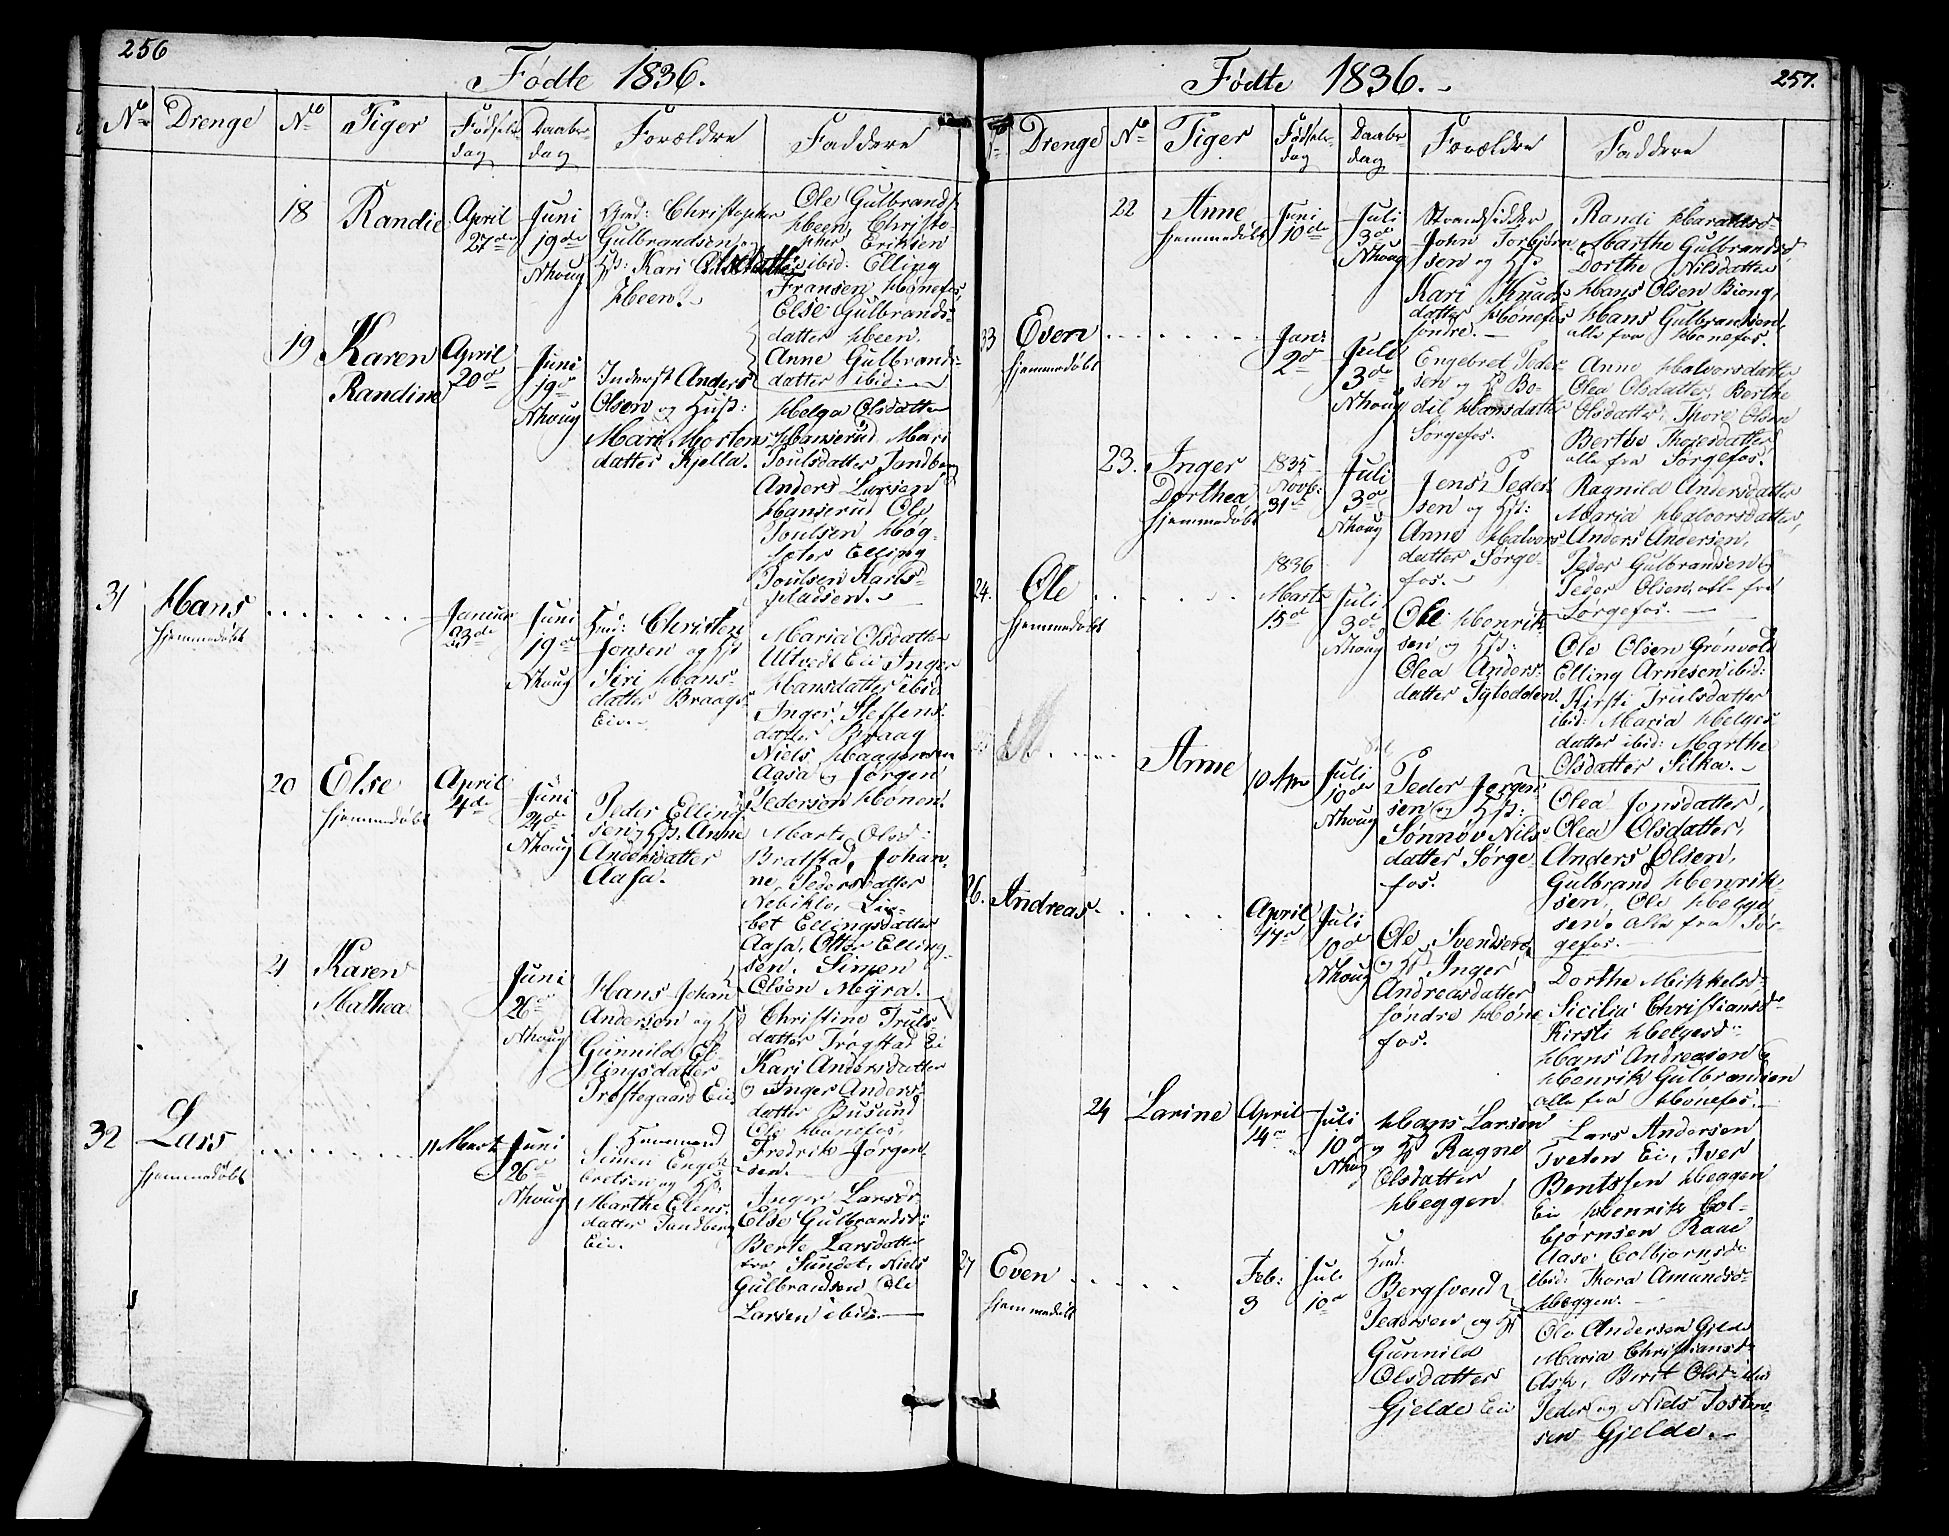 256
Födte 1836.
No Drenge No Piger Födsels dag Daabs dag Forældre Faddere
18 Randie April 27de Juni 19de Nhoug
Gmd: Christopher
Gulbrandsen og
Hst: Kari
Heen.
Ole Gulbrands.
Heen, Christo-
pher Eriksen
ibid: Elling
Fransen Hönefos,
Else Gulbrands-
datter Heen.
Anne Gulbrands-
datter ibid:
19 Karen Randine April 20de Juni 19de Nhoug
Inderst Anders
Olsen og Hust:
Mari Mortens-
datter Kjella.
Helga Olsdatter
Hanserud Mari
Poulsdatter Tandberg
Anders Larsen
Hanserud Ole
Poulsen Hög-
Elling
Poulsen Karls-
pladsen.
31 Hans hjemmedöbt Januar 23de Juni 19de Nhoug
Hmd: Christen
Jonsen og Hst
Siri Hans-
datter Braags-
Eie.
Maria Olsdatter
Ultvedt Eie Inger
Hansdatter ibid:
Inger Steffens-
datter Braag
Niels Haagensen
Aasa og Jörgen
Pedersen Hönen.
20 Else hjemmedöbt April 4de Juni 24de Nhoug
Peder Elling-
sen Hst. Anne
Andersdatter
Aasa.
Marte Olsd:
Bratstad, Johan-
ne Pedersdatter
Lis-
bet Ellingsdatter
Aasa, Otter Elling-
sen. Simen
Olsen Myra.
21 Karen Mathea Juni 26de Nhoug
Hans Johan
Anderson og Hst
Gunnild El-
lingsdatter
Prestegaard Eie
Christine Truls-
datter Trögstad Ei
Kari Andersdatter
og Inger Anders-
datter Busund
Ole Hönefos
Fredrik Jörgen-
sen.
32 Lars hjemmedöbt 11 Marts Juni 26de Nhoug
Huusmand
Simen Engeb-
bretsen og Hst.
Marthe Elens-
datter Tandberg
Eie.
Inger Larsd.
Else Gulbrandsd:
Berte Larsdatter
fra Sundet, Niels
Gulbrandsen Ole
Larsen ibid:
257.
Födte 1836.
No Drenge No Piger Födsels dag Daabs dag Forældre Faddere
22 Anne hjemmedöbt Juni 10de Juli 3de Nhoug
Strandsidder
John Torbjörn-
sen og Hst
Kari Knuds-
datter Hönefos
söndre.
Randi Haraldsd-
Marthe Gulbrandsd.
Dorthe Nilsdatter
Hans Olsen Biong,
Hans Gulbrandsen,
alle fra Hönefos.
23 Even hjemmedöbt Jan: 2de Juli 3de Nhoug
Engebret Peder-
sen og Hst Bo-
dil Hansdatter
Sörgefos.
Anne Halvorsdatter
Olea Olsdatter, Berthe
Olsdatter, Thore Olsen
Berthe Thoresdatter
alle fra Sörgefos.
23. Inger Dorthea hjemmedöbt 1835 Novb: 31te Juli 3de Nhoug
Jens Peder-
sen og Hst:
Anne Halvors-
datter Sörge-
fos.
Ragnild Andersdatter
Maria Halvorsdatter,
Anders Andersen,
Peder Gulbrandsen og
Peder Olsen, alle fra
Sörgefos.
24. Ole hjemmedöbt 1836 Marts 15de Juli 3de Nhoug
Ole Henrik-
sen og Hst:
Olea Anders-
datter Sylodden.
Ole Olsen Grönvold
Elling Arnesen ibid:
Kirsti Trulsdatter
ibid: Maria Helges-
datter ibid: Marthe
Olsdatter Silka.
Anne 10 Juli 10de Nhoug
Peder Jörgen-
sen og Hst:
Sönnöv Nils-
datter Sörge-
fos.
Olea Jonsdatter,
Olea Olsdatter,
Anders Olsen,
Gulbrand Henrik-
sen, Ole Helge-
sen, alle fra Sör-
gefos.
26. Andreas. April 17de Juli 10de Nhoug
Ole Svendsen
og Hst Inger
Andreasdatter
söndre Höne-
fos.
Dorthe Mikkelsd-
Sicilia Christiansd-
Kirsti Helgesd-
Hans Andreasen og
Henrik Gulbrandsen
alle fra Hönefos.
24 Larine April 14de Juli 10de Nhoug
Hans Larsen
og Hst Ragne
Olsdatter
Heggen
Lars Andersen
Tveten Ei, Iver
Bentssen Heggen
Ei Henrik Col-
björnsen Raae
Aase Colbjörnsd-
ibid: Thora Amundsd-
Heggen.
27 Even hjemmedöbt Feb: 3 Juli 10de
Hmd:
Bergsvend
Pedersen og Hst
Gunnild
Olsdatter
Gjelde Eie
Ole Andersen Gjelde
Maria Christiansd-
Ask, Berit Olsd- ibid
Peder og Niels Tosten-
sen Gjelde.